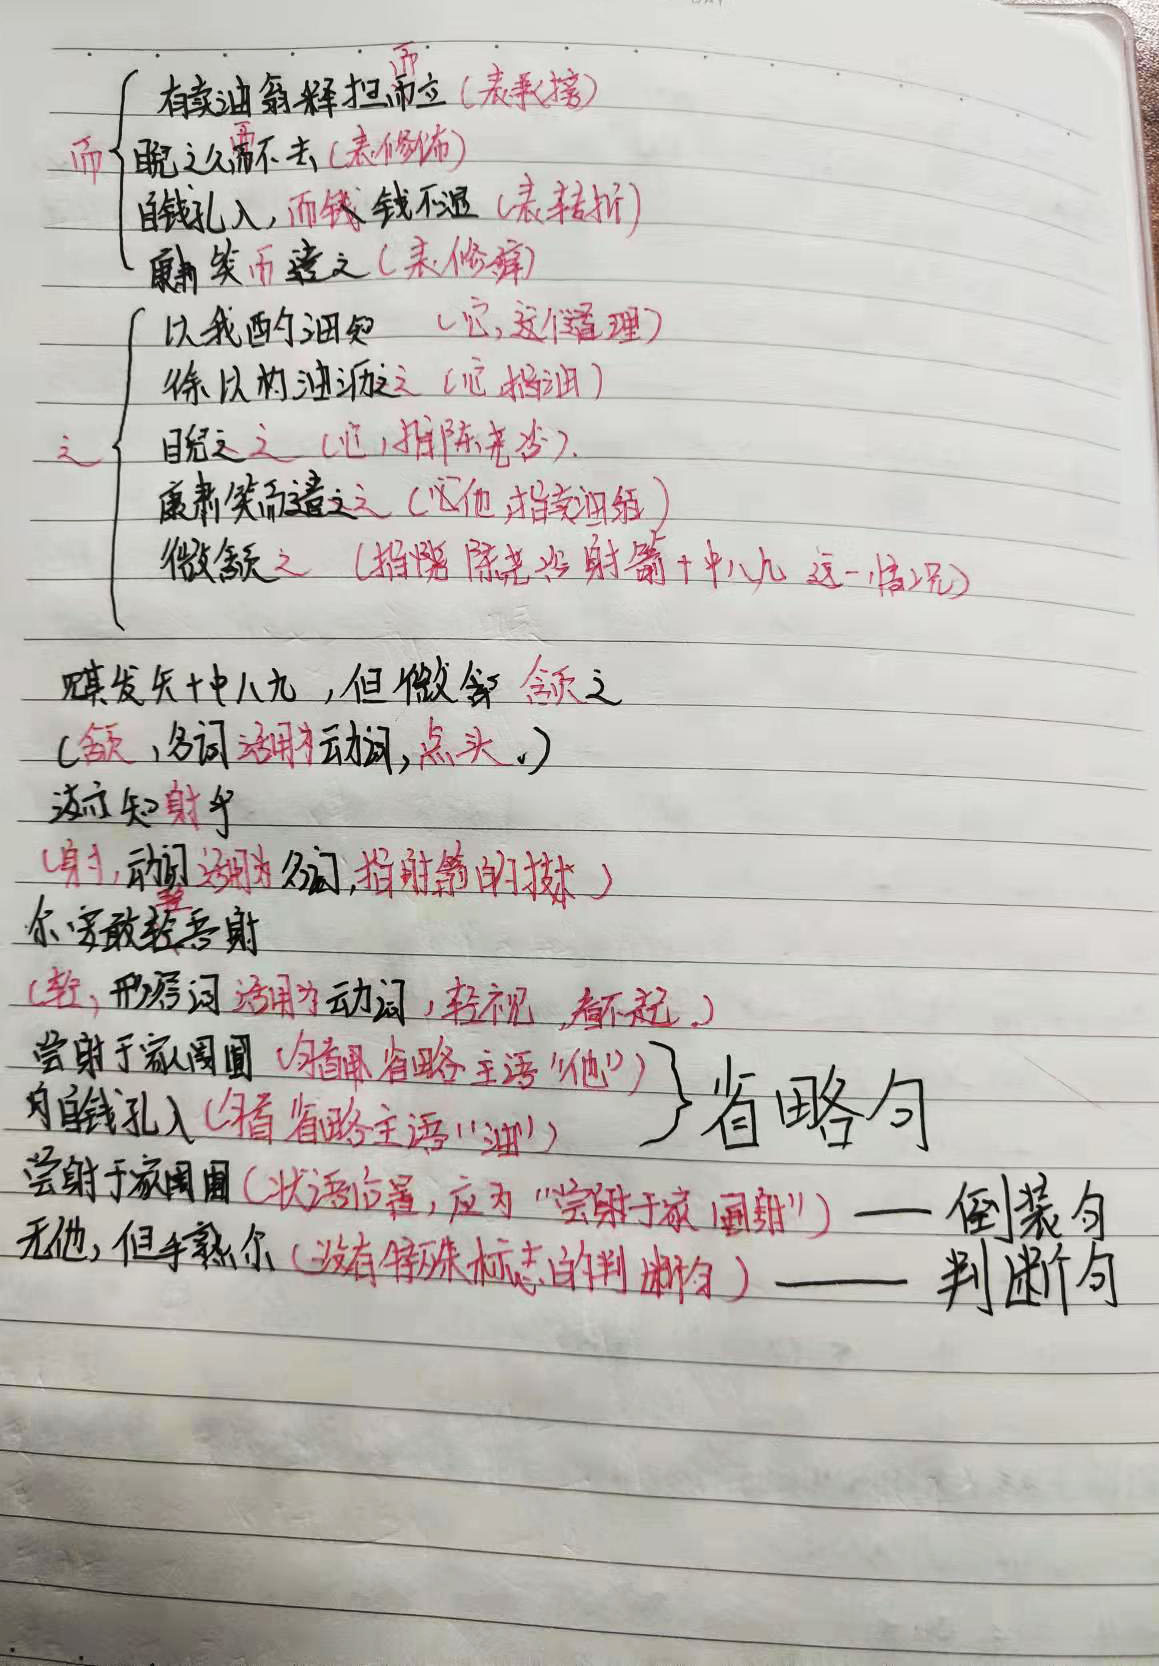 而
有卖油翁释担而立(表承接)
睨之久而不去(表修饰)
自钱孔入,而钱 钱不湿(表转折)
康肃笑而遣之(表修辞)
之
以我酌油知 (它,这个道理)
徐以杓油沥之之(它 指油)
睨之之(它,指陈尧咨).
康肃笑而遣之之(他,指卖油翁)
微颔之 (指 陈尧咨射箭十中八九 这一情况)
见其发矢十中八九,但微 颔之
(颔,名词活用为动词,点头.)
汝亦知射乎
(射,动词活用为名词,指射箭的技术)
尔安敢轻吾射
(轻,形容词活用为动词,轻视,看不起.)
尝射于家圃 (句首 省略主语“他”)
自钱孔入(句首 省略主语“油”)
省略句
尝射于家圃(状语后置,应为“尝射于家圃射”)——倒装句
无他,但手熟尔(没有特殊标志的判断句)——判断句